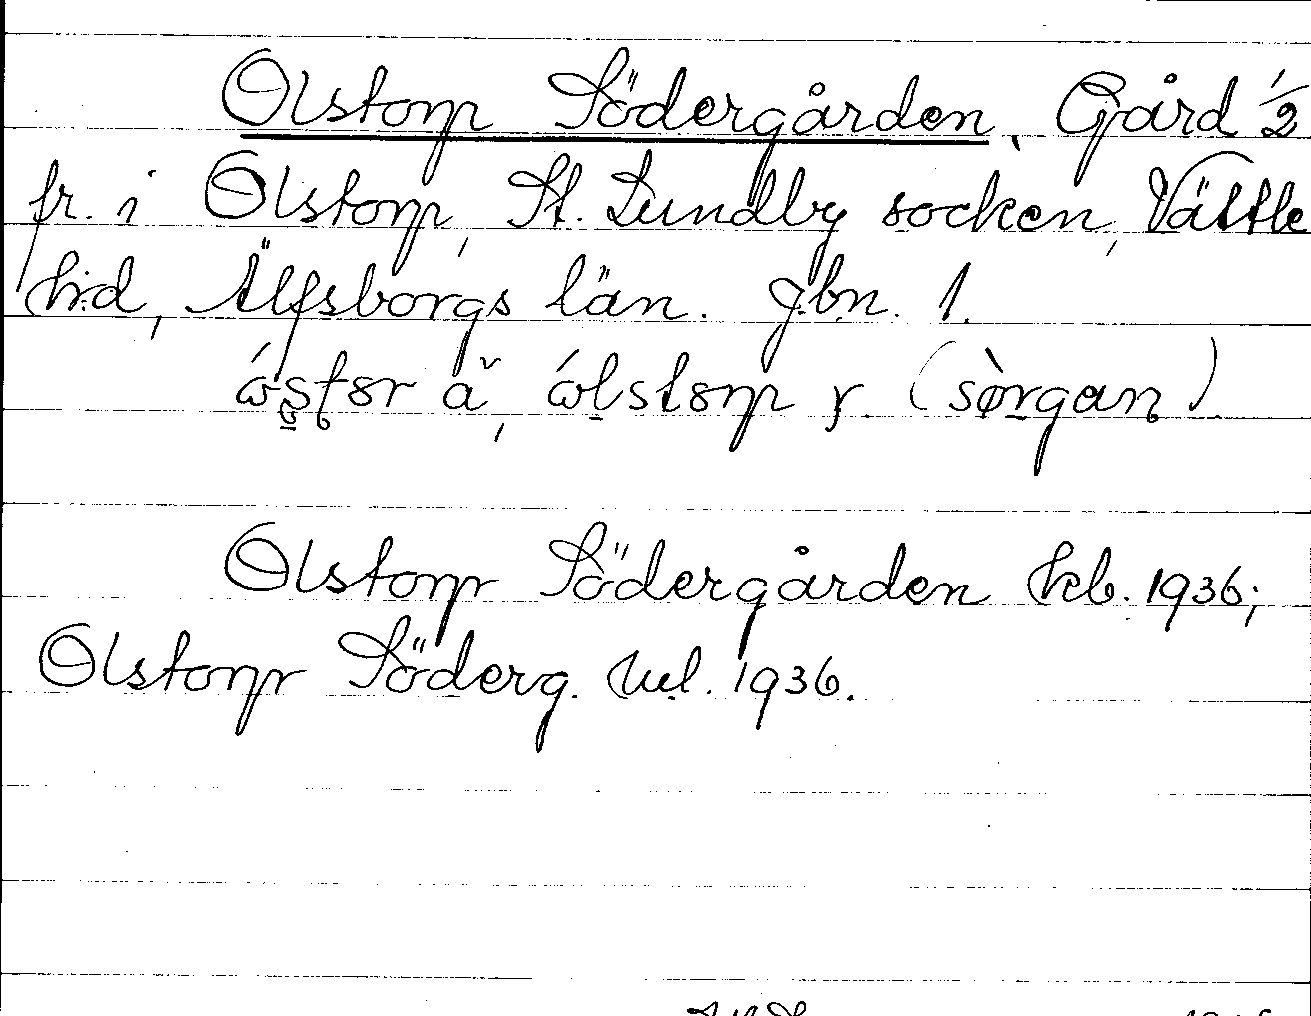 Olstorp Södergården, Gård 1/2
fr. i Olstorp, St. Lundby socken, Vättle
hd, Älfsborgs län. Jbn. 1.
Olstorp Södergården kb. 1936;
Olstorp Söderg. ml. 1936.